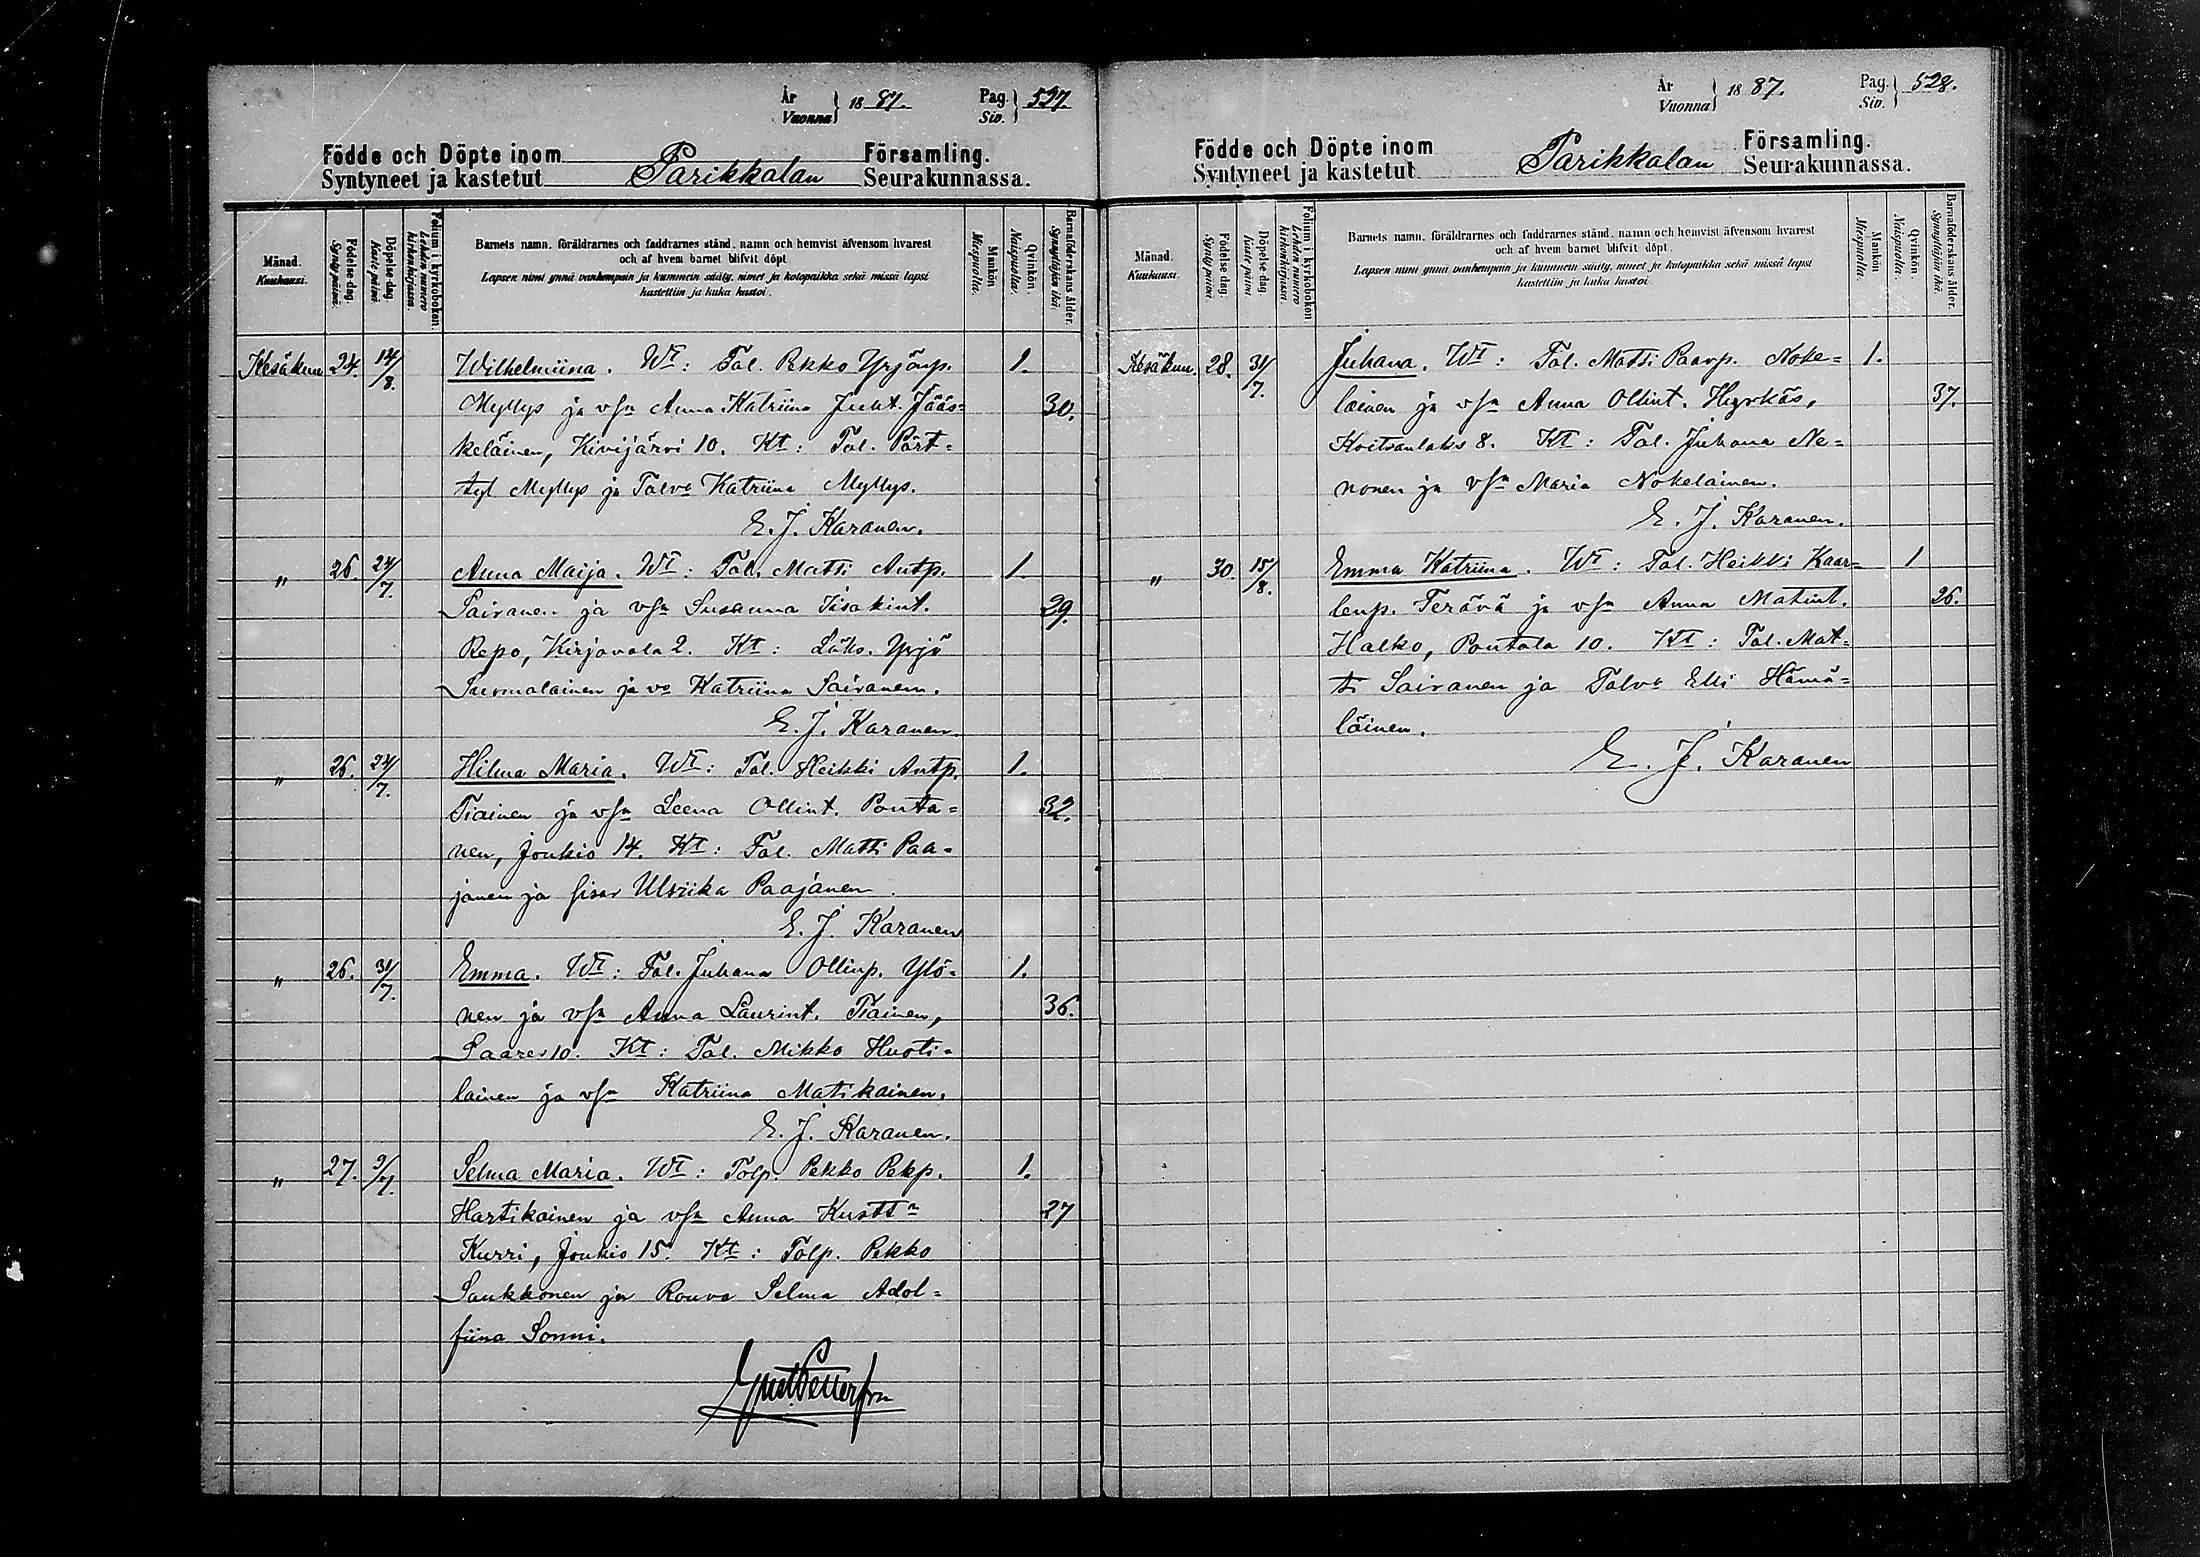 År
Vuonna } 18 87. Pag.
Siv. } 527
Födde och Döpte inom Församling.
Syntyneet ja kastetut Parikkalan Seurakunnassa.
Månad.
Kuukausi.
Födelse-dag.
Syntypäivä.
Döpelse-dag.
Kastepäivä.
Folium i kyrkoboken.
Lehden numero
kirkonkirjassa.
Barnets namn, föräldrarnes och faddrarnes stånd, namn och hemvist äfvensom hvarest
och af hvem barnet blifvit döpt.
Lapsen nimi ynnä vanhempain ja kummein sääty, nimet ja kotopaikka sekä missä lapsi
kastettiin ja kuka kastoi.
Mankön
Miespuolia.
Qvinkön.
Naispuolia.
Barnaföderskans ålder.
Synnyttäjän ikä.
Kesäkuu 24. 14/8. Wilhelmiina. Wt: Tal. Pekko Yrjönp. 1.
Myllys ja vsa Anna Katriina Juht. Jääs= 30.
keläinen, Kivijärvi 10. Kt: Tal. Pärt=
tyl Myllys ja Talva Katriina Myllys.
E. J. Karanen.
" 26. 24/7. Anna Maija. Wt: Tal. Matti Antp. 1.
Sairanen ja vsa Susanna Iisakint. 29.
Repo, Kirjavala 2. Kt: Läks. Yrjö
Suormalainen ja va Katriina Sairanen.
E. J. Karanen.
" 26. 24/7. Hilma Maria. Wt: Tal. Heikki Antp. 1.
Tiainen ja vsa Leena Ollint. Ponta= 32.
nen, Joukio 14. Kt: Tal. Matti Paa=
janen ja sisar Ulriika Paajanen.
E. J. Karanen
" 26. 31/7. Emma. Wt: Tal. Juhana Ollinp. Ylö= 1.
nen ja vsa Anna Laurint. Tiainen, 36.
Saares 10. Kt: Tal. Mikko Huoti=
lainen ja vsa Katriina Matikainen.
E. J. Karanen.
" 27. Selma Maria. Wt: Tolp. Pekko Pekp. 1.
Hartikainen ja vsa Anna Kustt 27
Kurri, Joukio 15. Kt: Tolp. Pekko
Saukkonen ja Rouva Selma Adol=
fiina Sonni.
År
Vuonna } 18 87. Pag.
Siv. } 528.
Födde och Döpte inom Församling.
Syntyneet ja kastetut Parikkalan Seurakunnassa.
Månad.
Kuukausi.
Födelse-dag.
Syntypäivä.
Döpelse-dag.
Kastepäivä.
Folium i kyrkoboken
Lehden numero
kirkonkirjassa.
Barnets namn, föräldrarnes och faddrarnes stånd, namn och hemvist äfvensom hvarest
och af hvem barnet blifvit döpt.
Lapsen nimi ynnä vanhempain ja kummein sääty, nimet ja kotopaikka sekä missä lapsi
kastettiin ja kuka kastoi
Mankön
Miespuolia.
Qvinkön.
Naispuolia.
Barnaföderskans ålder.
Synnyttäjän ikä.
Kesäkuu. 28. 31/7. Juhana. Wt: Tal. Matti Paavp. Noke= 1.
lainen ja vsa Anna Ollint. Hyrkäs, 37.
Koitsanlaks 8. Kt: Tal. Juhana Ne=
nonen ja vsa Maria Nokelainen.
E. J. Karanen.
" 30. 15/8. Emma Katriina. Wt: Tal. Heikki Kaar= 1
lenp. Terävä ja vsa Anna Matint. 26.
Halko, Poutala 10. Kt: Tal. Mat=
ti Sairanen ja Talva Elli Hämä=
läinen.
E. J. Karanen